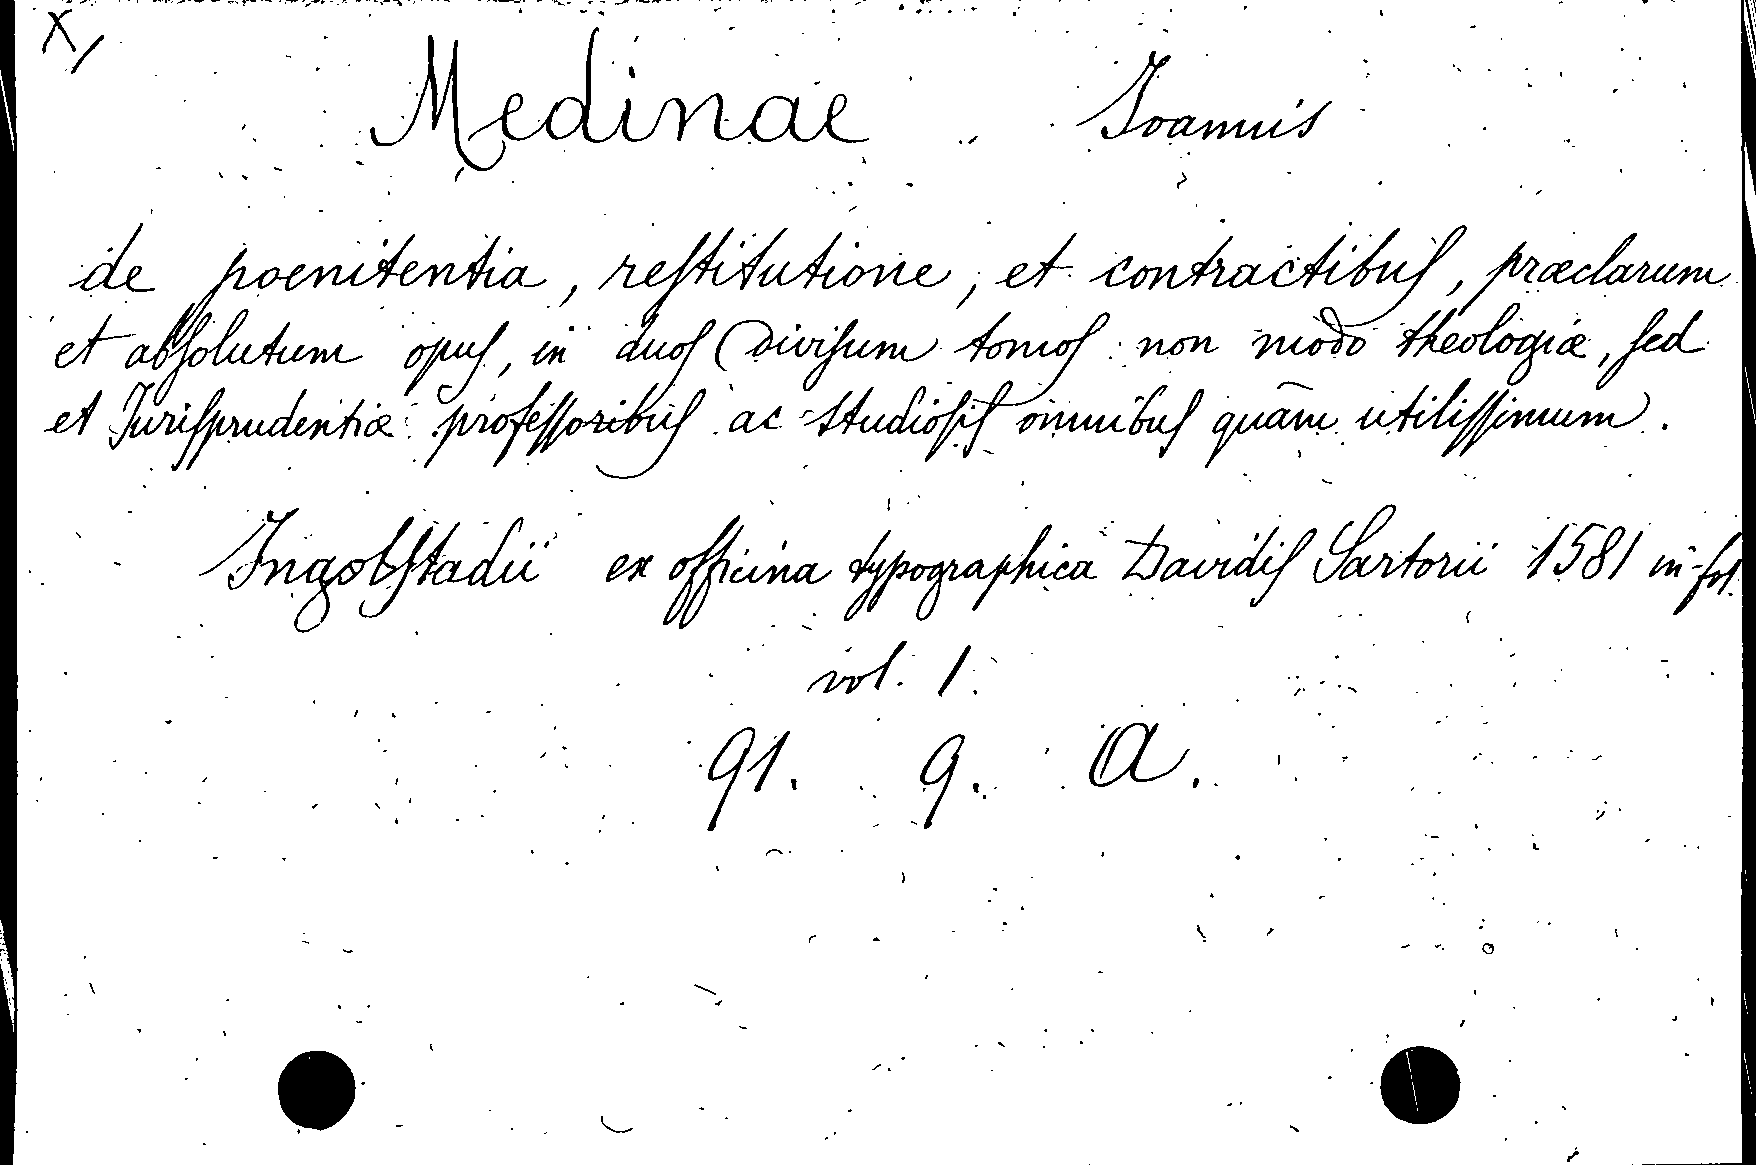 X/
Medinae Joannis
de poenitentia, reſtitutione, et contractibuſ, præclarum
et abſolutum opuſ, in duoſ Diviſum tomoſ: non modo theologiæ, ſed
et Juriſprudentiæ profeſſoribuſ ac studioſiſ omnibuſ quām utiliſſimum.
Ingolſtadii ex officina typographica Davidiſ Sartorii 1581 in-fol.
vol. 1.
91. 9. A.